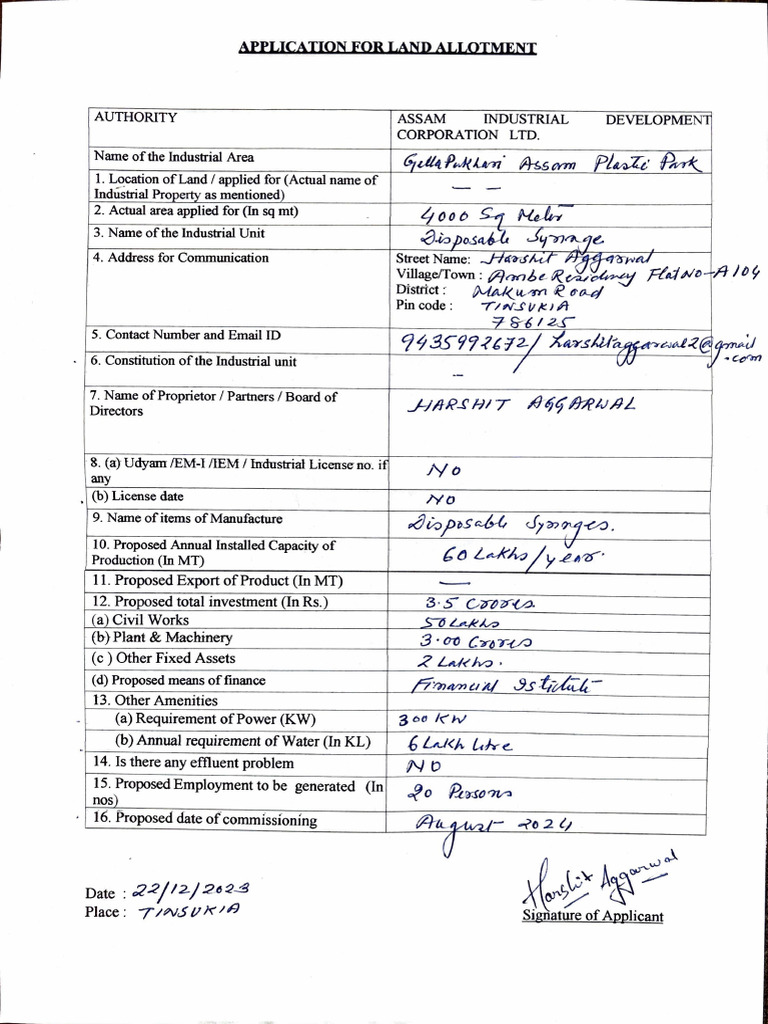 APPLICATION FOR LAND ALLOTMENT
AUTHORITY
ASSAM INDUSTRIAL DEVELOPMENT
CORPORATION LTD.
Name of the Industrial Area
GellaPukhari Assam Plastic Park
1. Location of Land / applied for (Actual name of
Industrial Property as mentioned)
— —
2. Actual area applied for (In sq mt)
4000 Sq Meter
3. Name of the Industrial Unit
Disposable Syringe
4. Address for Communication
Street Name: Harshit Aggarwal
Village/Town : Ambe Residency Flat No-A104
District : Makum Road
Pin code : TINSUKIA
786125
5. Contact Number and Email ID
9435992672/ harshitaggarwal2@gmail
.com
6. Constitution of the Industrial unit
—
7. Name of Proprietor / Partners / Board of
Directors
HARSHIT AGGARWAL
8. (a) Udyam /EM-I /IEM / Industrial License no. if
any
NO
(b) License date
NO
9. Name of items of Manufacture
Disposable Syringes.
10. Proposed Annual Installed Capacity of
Production (In MT)
60 Lakhs/year.
11. Proposed Export of Product (In MT)
—
12. Proposed total investment (In Rs.)
3.5 Crores.
(a) Civil Works
50 Lakhs
(b) Plant & Machinery
3.00 Crores
(c ) Other Fixed Assets
2 Lakhs.
(d) Proposed means of finance
Financial Istitute
13. Other Amenities
(a) Requirement of Power (KW)
300 KW
(b) Annual requirement of Water (In KL)
6 Lakh Litre
14. Is there any effluent problem
NO
15. Proposed Employment to be generated (In
nos)
20 Persons
16. Proposed date of commissioning
August 2024
Date : 22/12/2023
Place : TINSUKIA
Harshit Aggarwal
Signature of Applicant